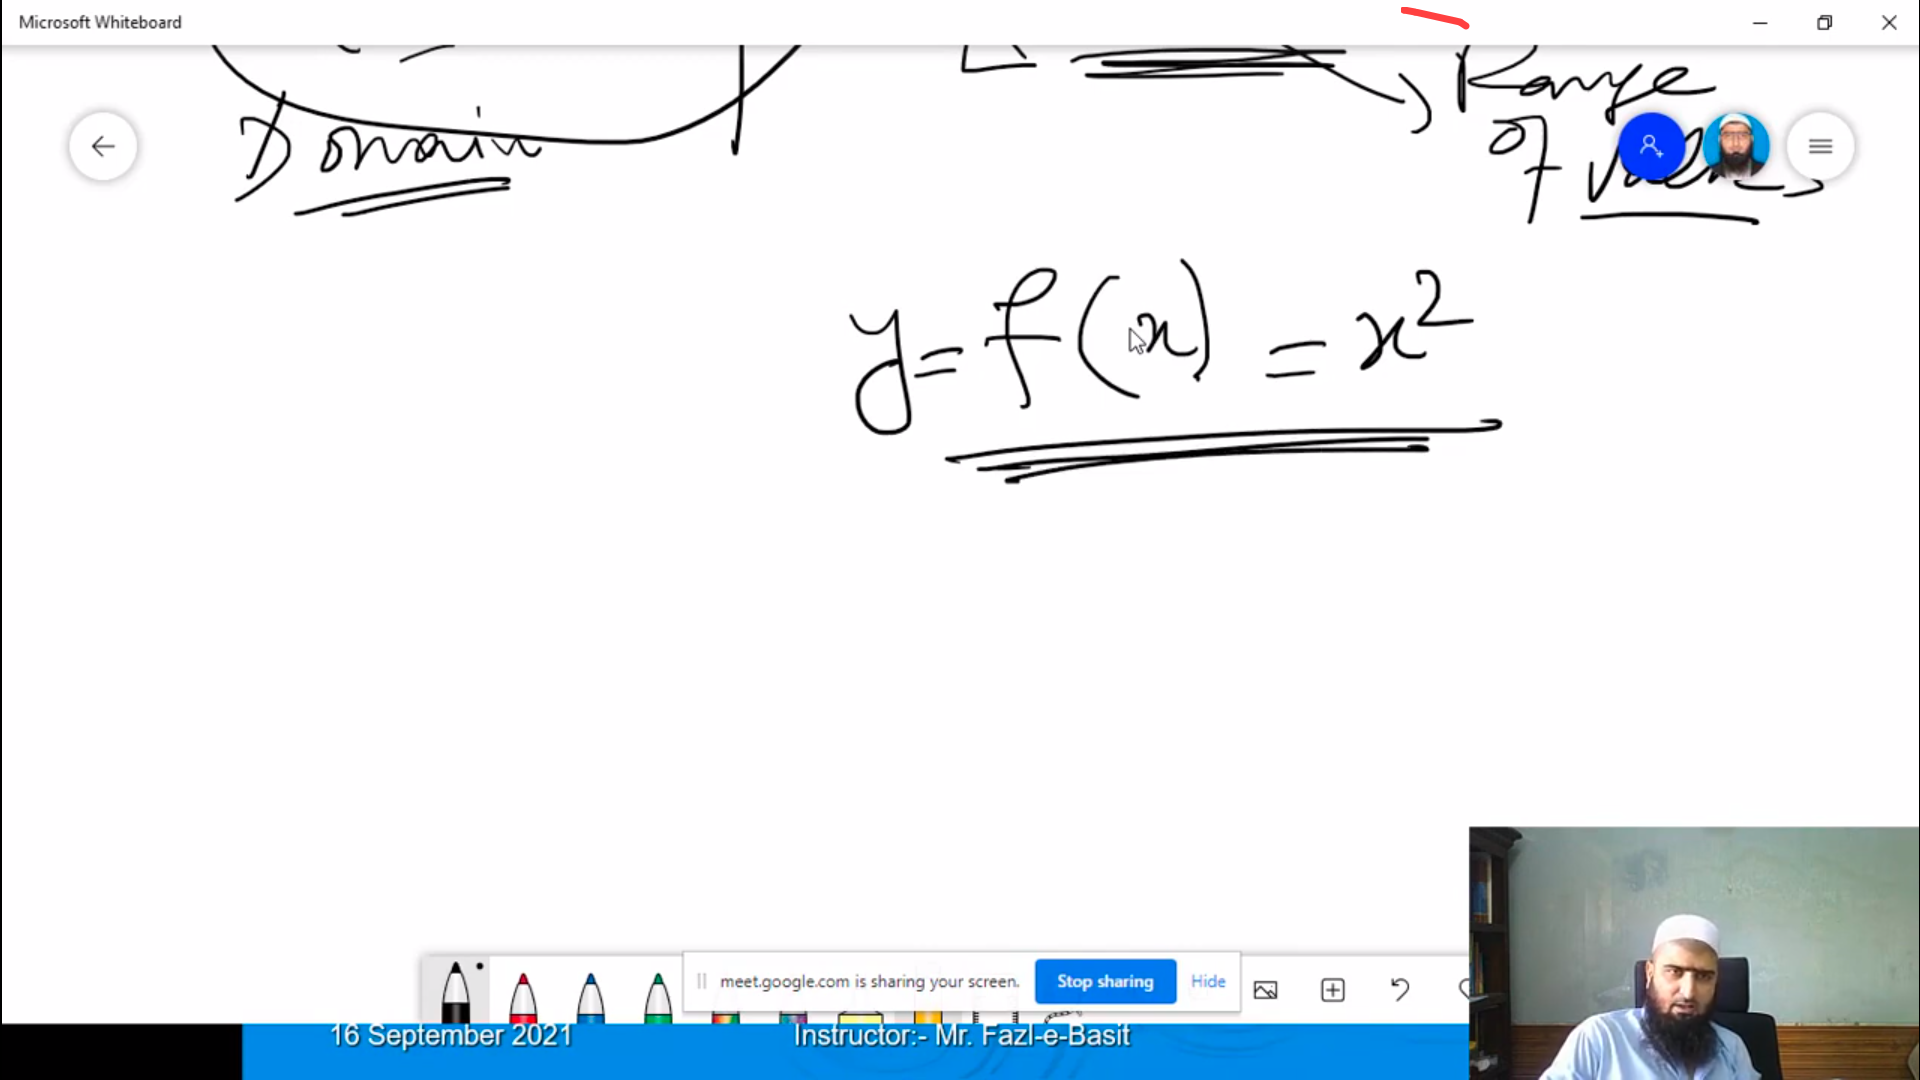 Microsoft Whiteboard
Range
of Values
Domain
y = f(x) = x²
meet.google.com is sharing your screen.
Stop sharing
Hide
16 September 2021
Instructor:- Mr. Fazl-e-Basit